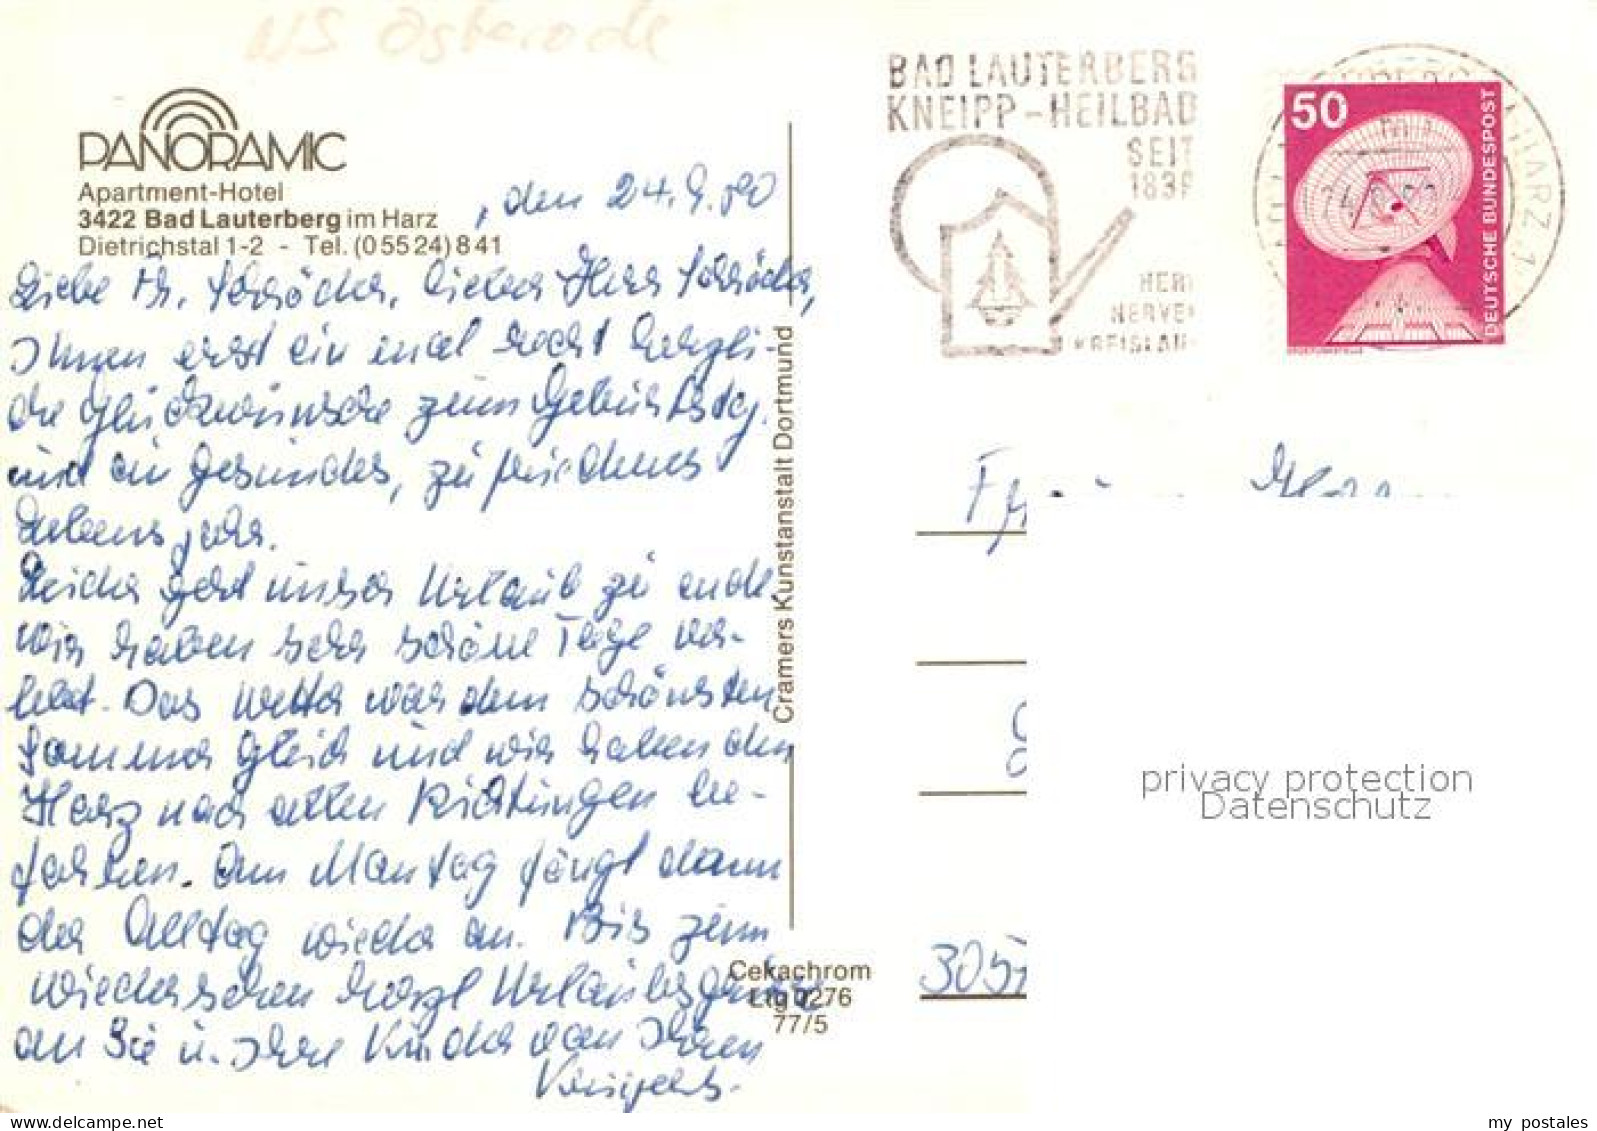 NS Osterode
PANORAMIC
Apartment-Hotel
3422 Bad Lauterberg im Harz
Dietrichstal 1-2 - Tel. (05524) 841
, den 24.9.80
Liebe Fr. Schröder, lieber Herr Schröder,
Ihnen erst ein mal recht herzli-
che Glückwünsche zum Geburtstag.
und ein gesundes, zufriedenes
Lebensjahr.
Leider geht unser Urlaub zu ende
wir haben sehr schöne Tage ver-
lebt. Das Wetter war dem schönsten
Sommer gleich und wir haben den
Harz nach allen Richtungen be-
fahren. Am Montag fängt dann
der Alltag wieder an. Bis zum
wiedersehen herzl Urlaubsgrüße
an Sie u. Ihre Kinder von Ihren
Cramers Kunstanstalt Dortmund
Cekachrom
Ltg 0276
77/5
BAD LAUTERBERG
KNEIPP-HEILBAD
SEIT
1839
HERZ
NERVEN
KREISLAUF
50
DEUTSCHE BUNDESPOST
HARZ 1
privacy protection
Datenschutz
my postales